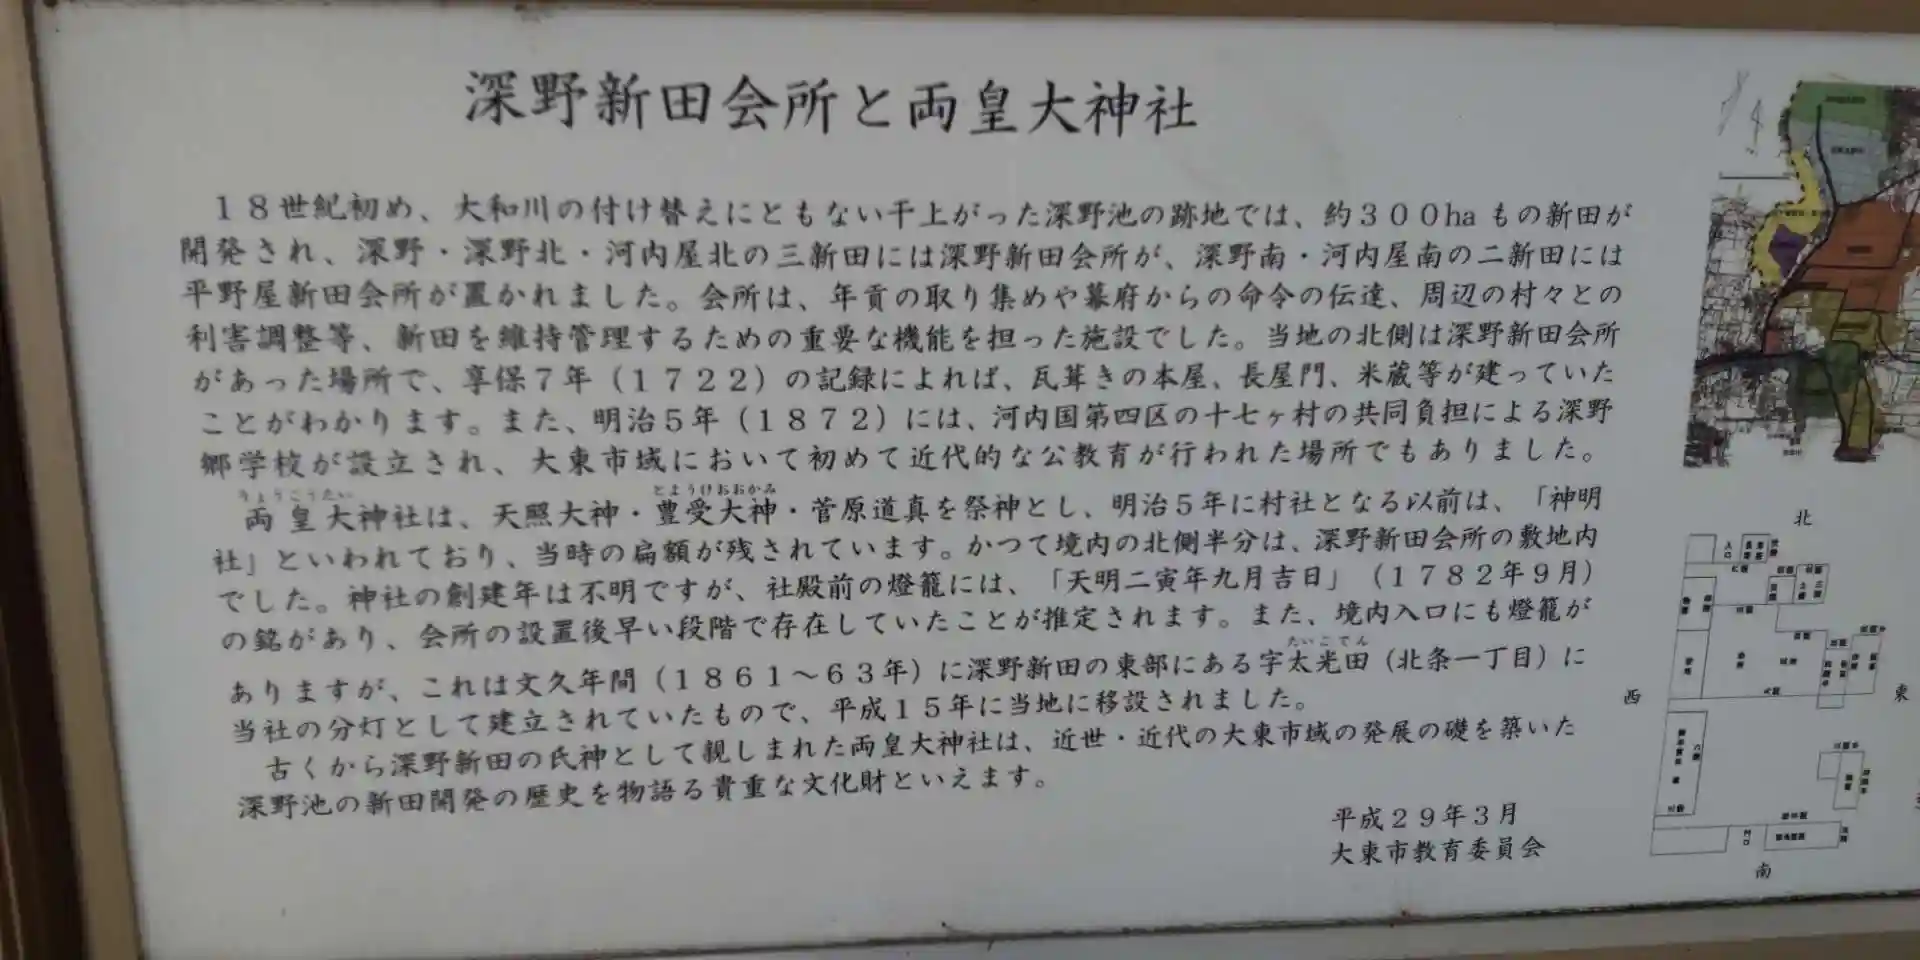 深野新田会所と両皇大神社
18世紀初め、大和川の付け替えにともない干上がった深野池の跡地では、約300haもの新田が
開発され、深野・深野北・河内屋北の三新田には深野新田会所が、深野南・河内屋南の二新田には
平野屋新田会所が置かれました。会所は、年貢の取り集めや幕府からの命令の伝達、周辺の村々との
利害調整等、新田を維持管理するための重要な機能を担った施設でした。当地の北側は深野新田会所
があった場所で、享保7年(1722)の記録によれば、瓦葺きの本屋、長屋門、米蔵等が建っていた
ことがわかります。また、明治5年(1872)には、河内国第四区の十七ヶ村の共同負担による深野
郷学校が設立され、大東市域において初めて近代的な公教育が行われた場所でもありました。
りょうこうたい とようけおおかみ
両皇大神社は、天照大神・豊受大神・菅原道真を祭神とし、明治5年に村社となる以前は、「神明
社」といわれており、当時の扁額が残されています。かつて境内の北側半分は、深野新田会所の敷地内
でした。神社の創建年は不明ですが、社殿前の燈籠には、「天明二寅年九月吉日」(1782年9月)
の銘があり、会所の設置後早い段階で存在していたことが推定されます。また、境内入口にも燈籠が
たいこでん
ありますが、これは文久年間(1861～63年)に深野新田の東部にある字太光田(北条一丁目)に
当社の分灯として建立されていたもので、平成15年に当地に移設されました。
古くから深野新田の氏神として親しまれた両皇大神社は、近世・近代の大東市域の発展の礎を築いた
深野池の新田開発の歴史を物語る貴重な文化財といえます。
平成29年3月
大東市教育委員会
北
西
東
南